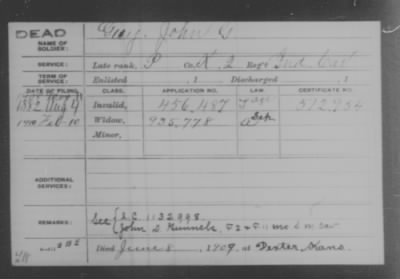 DEAD
NAME OF SOLDIER: Guy, John G
SERVICE: Late rank, P Co. A, 2 Reg't Ind Cav
TERM OF SERVICE: Enlisted , 1 Discharged , 1
DATE OF FILING. CLASS. APPLICATION NO. LAW. CERTIFICATE NO.
1882 Aug 4 Invalid, 456,457 512,954
1910 Feb-10 Widow, 935,778
Minor,
ADDITIONAL SERVICES:
REMARKS: See S.C. 1132998
John S.
Died June 8, 1909, at Dexter, Kans.